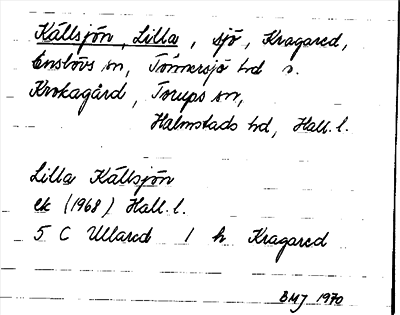 Källsjön, Lilla, sjö, Kragared,
Enslövs sn, Tönnersjö hd o.
Krokagård, Torups sn,
Halmstads hd, Hall.l.
Lilla Källsjön
ek (1968) Hall.l.
5 C Ullared 1 h Kragared
BMJ 1970